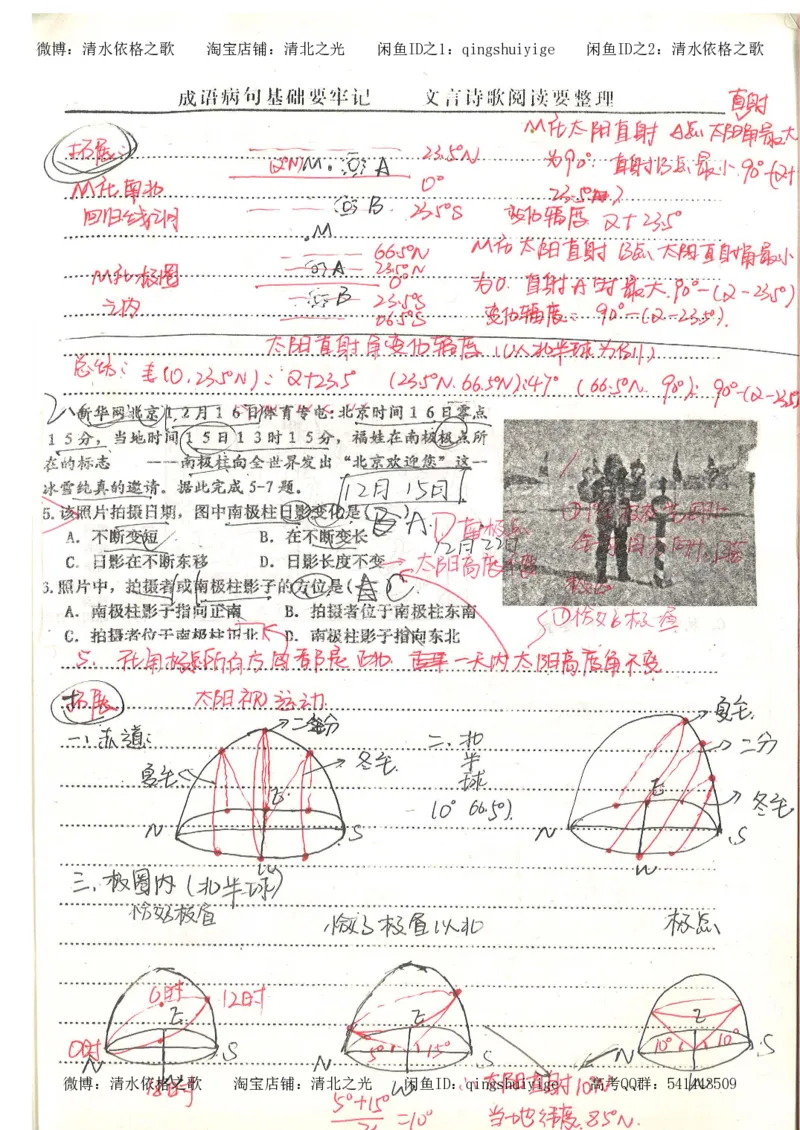 微博：清水依格之歌 淘宝店铺：清北之光 闲鱼ID之1：qingshuiyige 闲鱼ID之2：清水依格之歌
成语病句基础要牢记 文言诗歌阅读要整理
直射
拓展：
M在太阳直射A点太阳角最大
M A 23.5°N
为90° 直射B点最小 90°-(α+23.5°)
M在南北
回归线之间
0°
B 23.5°S
变化幅度 α+23.5°
M
66.5°N
A 23.5°N
0°
B 23.5°S
66.5°S
M在极圈
之内
M在太阳直射B点太阳直射角最小
为0. 直射A时最大 90°-(α-23.5°)
变化幅度 90°-(α-23.5°).
太阳直射角变化幅度（以北半球为例）
总结：(0, 23.5°N): α+23.5° (23.5°N, 66.5°N): 47° (66.5°N, 90°): 90°-(α-23.5°
新华网北京12月16日体育专电：北京时间16日零点
15分，当地时间15日13时15分，福娃在南极极点所
在的标志 ——南极柱向全世界发出“北京欢迎您”这一
冰雪纯真的邀请。据此完成5-7题。
12月15日
5.该照片拍摄日期，图中南极柱日影变化是（ ）
A．不断变短 B．在不断变长
C．日影在不断东移 D．日影长度不变
12月22日
①南极点
太阳高度不变
6.照片中，拍摄者或南极柱影子的方位是（ ）
A．南极柱影子指向正南 B．拍摄者位于南极柱东南
C．拍摄者位于南极柱正北 D．南极柱影子指向东北
5. 在南极点所有方向都是正北 一天内太阳高度角不变
拓展 太阳视运动
一、赤道：
二分
夏至
冬至
E
N S
W
二、北半球
(0° 66.5°).
夏至
二分
冬至
E
N S
W
三、极圈内（北半球）
恰好极昼
恰好极昼以北
极点
6时
12时
0时
18时
E
N S
E
5° 15°
N S
W
E
10° 10°
N S
太阳直射10°N
当地纬度85°N.
5°+15°
=10°
微博：清水依格之歌 淘宝店铺：清北之光 闲鱼ID：qingshuiyige 高考QQ群：541448509